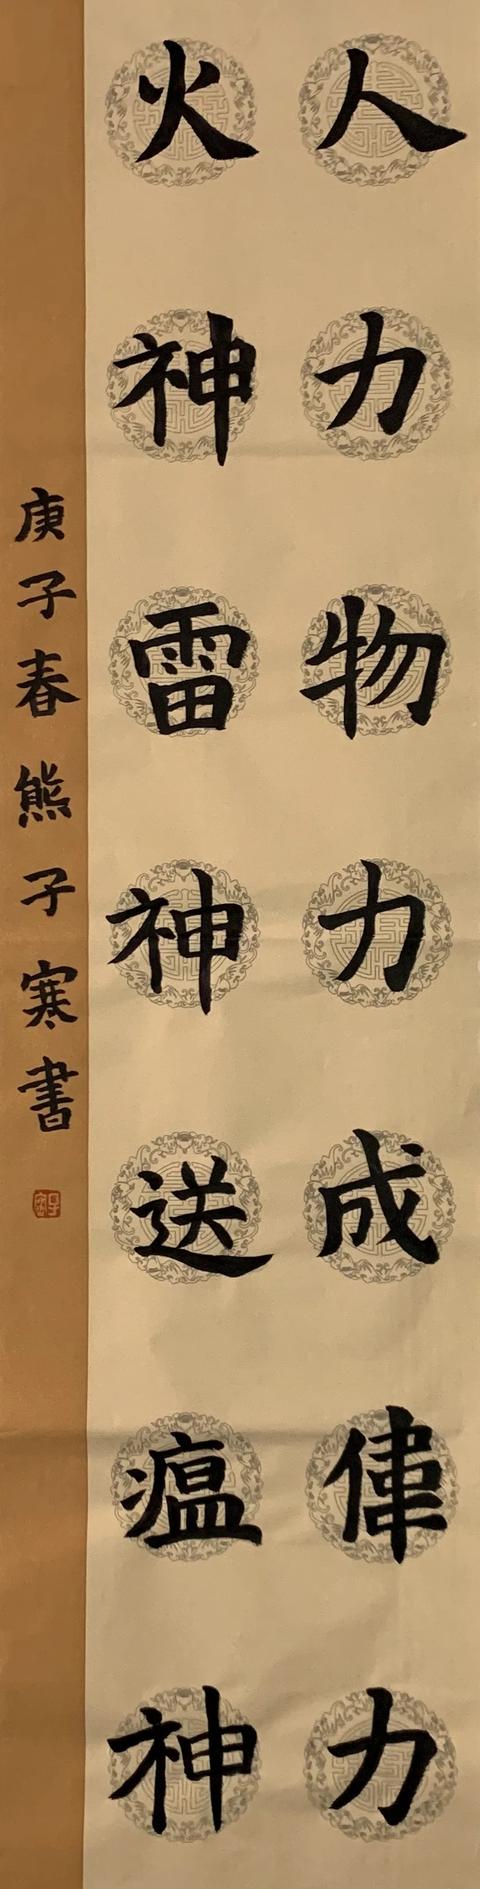 人力物力成偉力
火神雷神送瘟神
庚子春熊子寒書